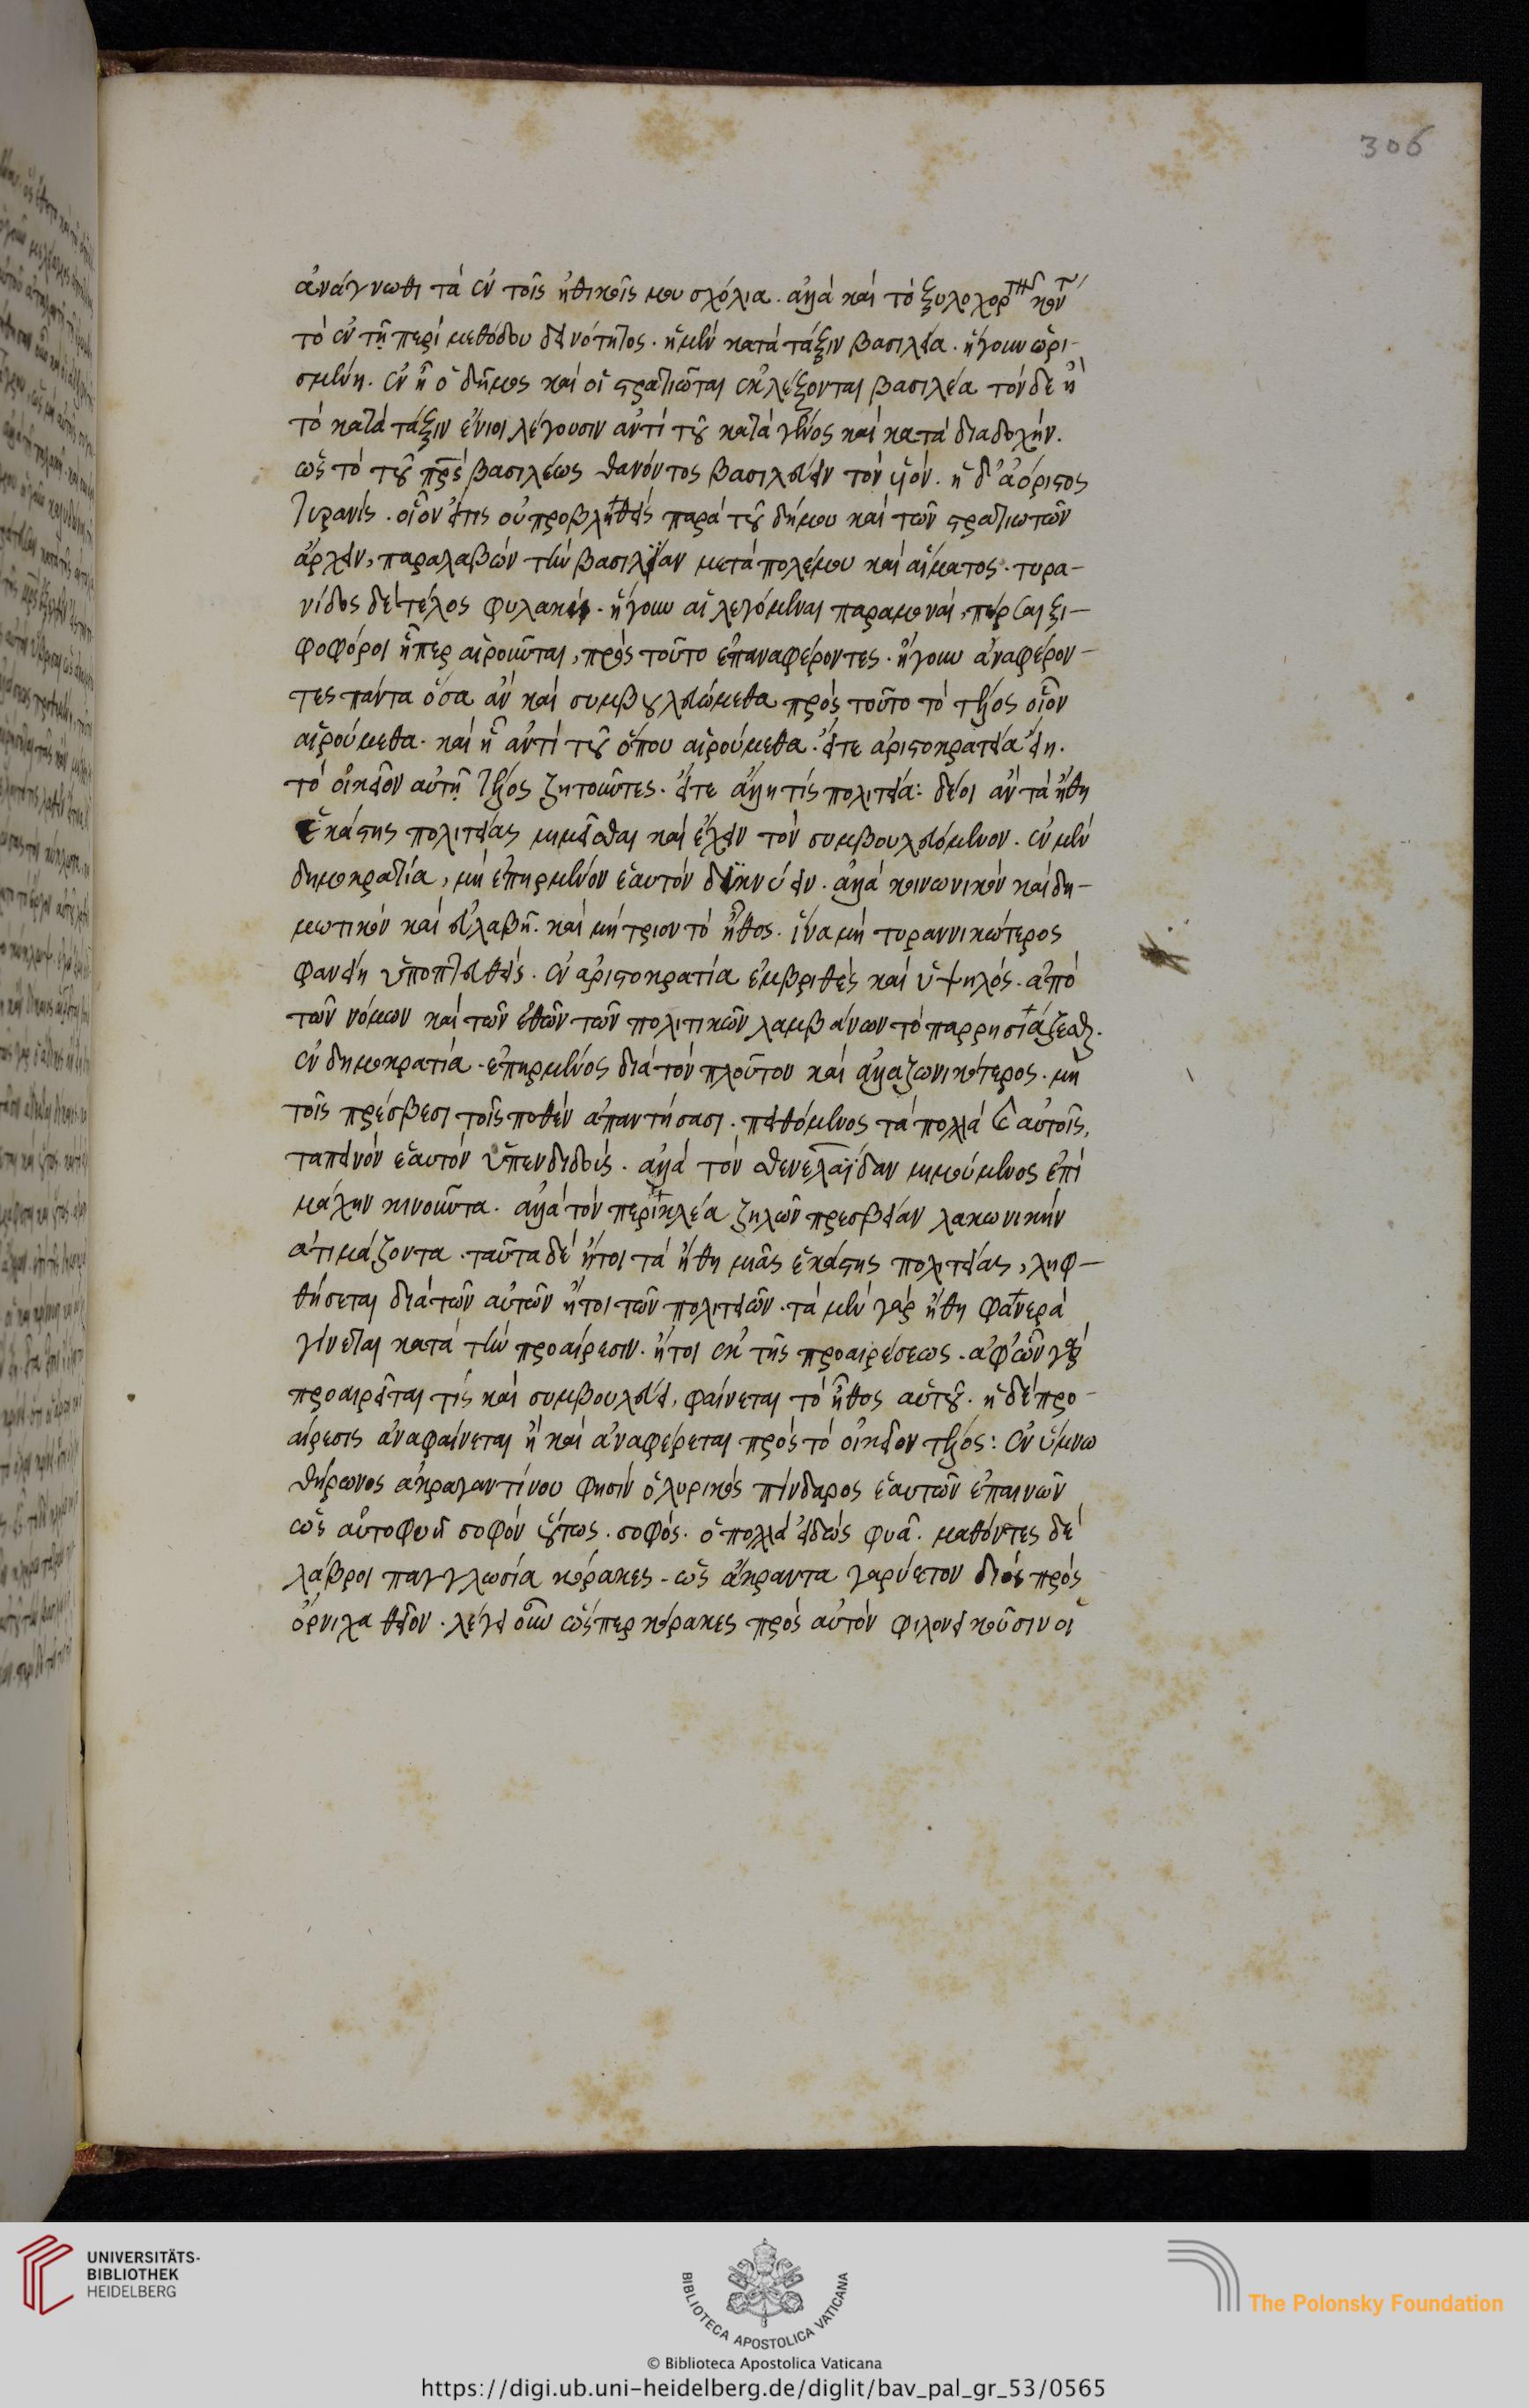 306
ἀνάγνωθι τὰ ἐν τοῖς ἠθικοῖς μου σχόλια. ἀλλὰ καὶ τὸ
τὸ ἐν τῇ περὶ μεθόδου δεινότητος. ἡ μὲν κατὰ τάξιν βασιλεία. ἤγουν ὡρι-
σμένη. ἐν ᾗ ὁ δῆμος καὶ οἱ στρατιῶται ἐκλέξονται βασιλέα τόνδε ἢ
τὸ κατὰ τάξιν ἔνιοι λέγουσιν ἀντὶ τοῦ κατὰ γένος καὶ κατὰ διαδοχήν.
ὡς τὸ τοῦ πρς βασιλέως θανόντος βασιλεύειν τὸν υἱόν. ἡ δ' ἀόριστος
τυρανίς. οἷον εἴτις οὐ προβληθεὶς παρὰ τοῦ δήμου καὶ τῶν στρατιωτῶν
ἄρχειν, παραλαβὼν τὴν βασιλείαν μετὰ πολέμου καὶ αἵματος. τυρα-
νίδος δὲ τέλος φυλακὴ. ἤγουν αἱ λεγόμεναι παραμοναὶ, πέρσαι ξι-
φοφόροι ἧπερ αἱροῦνται, πρὸς τοῦτο ἐπαναφέροντες. ἤγουν ἀναφέρον-
τες πάντα ὅσα ἂν καὶ συμβουλευώμεθα πρὸς τοῦτο τὸ τέλος οἷον
αἱρούμεθα. καὶ ἧ ἀντὶ τοῦ ὅπου αἱρούμεθα. εἴτε ἀριστοκρατεία εἴη.
τὸ οἰκεῖον αὐτῇ τέλος ζητοῦντες. εἴτε ἄλλη τίς πολιτεία: δέοι ἂν τὰ ἤθη
ἑκάστης πολιτείας μιμεῖσθαι καὶ ἔχειν τὸν συμβουλευόμενον. ἐν μὲν
δημοκρατία, μὴ ἐπηρμένον ἑαυτὸν δεικνύειν. ἀλλὰ κοινωνικὸν καὶ δη-
μωτικὸν καὶ εὐλαβῆ. καὶ μήτριον τὸ ἦθος. ἵνα μὴ τυραννικώτερος
φανείη ὑποπτευθείς. ἐν ἀριστοκρατία ἐμβριθὲς καὶ ὑψηλός. ἀπὸ
τῶν νόμων καὶ τῶν ἐθῶν τῶν πολιτικῶν λαμβάνων τὸ παρρησιάζεσθαι.
ἐν δημοκρατία. ἐπηρμένος διὰ τὸν πλοῦτον καὶ ἀλαζωνικότερος. μὴ
τοῖς πρέσβεσι τοῖς ποθὲν ἀπαντήσασι. πειθόμενος τὰ πολλὰ αὐτοῖς,
ταπεινὸν ἑαυτὸν ὑπενδιδοὺς. ἀλλὰ τὸν σθενελαΐδαν μιμούμενος ἐπὶ
μάχην κινοῦντα. ἀλλὰ τὸν περικλέα ζηλῶν πρεσβείαν λακωνικὴν
ἀτιμάζοντα. ταῦτα δὲ ἤτοι τὰ ἤθη μιᾶς ἑκάστης πολιτείας, ληφ-
θήσεται διὰ τῶν αὐτῶν ἤτοι τῶν πολιτειῶν. τὰ μὲν γὰρ ἤθη φανερὰ
γίνεται κατὰ τὴν προαίρεσιν. ἤτοι ἐκ τῆς προαιρέσεως. ἀφ' ὧν γὰρ
προαιρεῖται τίς καὶ συμβουλεύει, φαίνεται τὸ ἦθος αὐτοῦ. ἡ δὲ προ-
αίρεσις ἀναφαίνεται ἢ καὶ ἀναφέρεται πρὸς τὸ οἰκεῖον τέλος: ἐν ὕμνω
θήρωνος ἀκραγαντίνου φησὶν ὁ λυρικὸς πίνδαρος ἑαυτῶν ἐπαινῶν
ὡς αὐτοφυῆ σοφὸν οὕτως. σοφός. ὁ πολλὰ εἰδὼς φυᾶ. μαθόντες δὲ
λάβροι παγγλωσία κόρακες. ὡς ἄκραντα γαρύετον διὸς πρὸς
ὄρνιχα θεῖον. λέγει οὖν ὥσπερ κόρακες πρὸς αὐτὸν φιλονεικοῦσιν οἱ
UNIVERSITÄTS-
BIBLIOTHEK
HEIDELBERG
BIBLIOTECA APOSTOLICA VATICANA
The Polonsky Foundation
© Biblioteca Apostolica Vaticana
https://digi.ub.uni-heidelberg.de/diglit/bav_pal_gr_53/0565